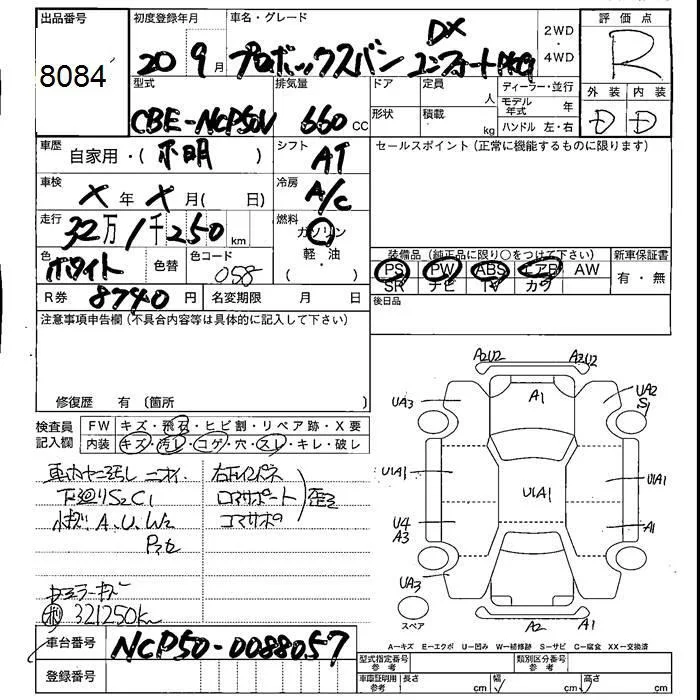 出品番号
8084
初度登録年月
20 9月
車名・グレード
プロボックスバン DX コンフォートPKG
2WD
・
4WD
評価点
R
外装 内装
D D
型式
CBE-NCP50V
排気量
660 cc
ドア
定員 人
形状
積載 kg
ディーラー・並行
モデル年式 年
ハンドル 左・右
車歴
自家用・(不明)
シフト
AT
車検
X年X月( 日)
冷房
A/C
走行
32万1千250km
燃料
ガソリン
軽・油
( )
色
ホワイト
色替
色コード
058
R券 8740円
名変期限 月 日
セールスポイント(正常に機能するものに限ります)
装備品(純正品に限り○をつけて下さい)
PS PW ABS エアB AW
SR ナビ TV カワ
新車保証書
有・無
後日品
注意事項申告欄(不具合内容等は具体的に記入して下さい)
修復歴 有〔箇所 〕
検査員記入欄
FW キズ・飛石・ヒビ割・リペア跡・X要
内装 キズ・汚レ・コゲ・穴・スレ・キレ・破レ
車内ヤニ汚レ ニオイ.
下廻りS2C1
小キズ A.U.W2
右F
コアサポート
コアサポ
歪
321250km
A2U2 A2U2
UA3 A1 UA2
S1
U1A1 U1A1 U1A1
U4
A3 A1
UA3
A2 A1
スペア
A=キズ E=エクボ U=凹み W=補修跡 S=サビ C=腐食 XX=交換済
車台番号
NCP50-0088057
登録番号
型式指定番号
参考
類別区分番号
参考
車庫証明用
参考
長さ cm 幅 cm 高さ cm